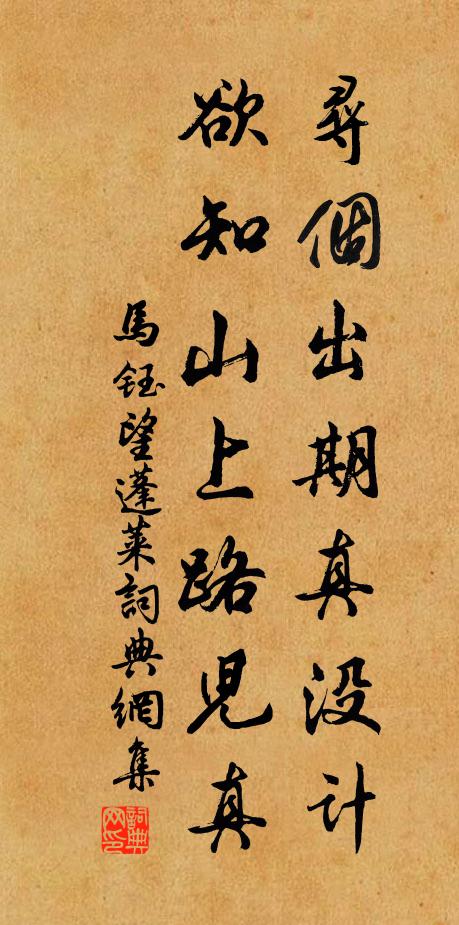 尋個出期真没计
欲知山上路兒真
馬鈺望蓬萊詞典網集
詞典网印